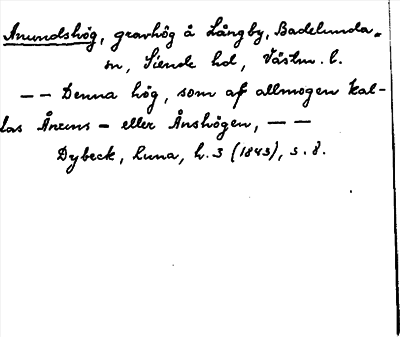 Anundshög, gravhög å Långby, Badelunda
sn, Siende hd, Västm. l.
— — Denna hög, som af allmogen kal-
las Ånens - eller Ånshögen, — —
Dybeck, Runa, h. 3 (1843), s. 8.